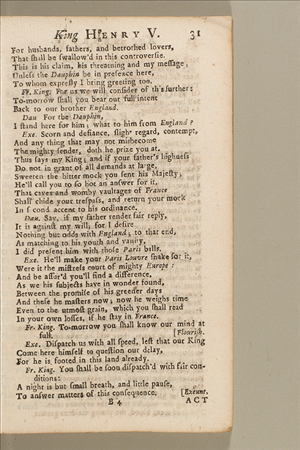 King HENRY V. 31
For husbands, fathers, and betrothed lovers,
That shall be swallow'd in this controversie.
This is his claim, his threatning and my message,
Unless the Dauphin be in presence here,
To whom expresly I bring greeting too.
Fr. King. For us we will consider of this further:
To-morrow shall you bear our full intent
Back to our brother England.
Dau For the Dauphin,
I stand here for him; what to him from England?
Exe. Scorn and defiance, slight regard, contempt,
And any thing that may not misbecome
The mighty sender, doth he prize you at.
Thus says my King; and if your father's highness
Do not in grant of all demands at large,
Sweeten the bitter mock you sent his Majesty,
He'll call you to so hot an answer for it,
That caves and womby vaultages of France
Shall chide your trespass, and return your mock
In second accent to his ordinance.
Dau. Say, if my father tender fair reply,
It is against my will; for I desire
Nothing but odds with England; to that end,
As matching to his youth and vanity,
I did present him with those Paris balls.
Exe. He'll make your Paris Louvre shake for it,
Were it the mistress court of mighty Europe:
And be assur'd you'll find a difference,
As we his subjects have in wonder found,
Between the promise of his greener days
And these he masters now; now he weighs time
Even to the utmost grain, which you shall read
In your own losses, if he stay in France.
Fr. King. To-morrow you shall know our mind at
full. [Flourish.
Exe. Dispatch us with all speed, lest that our King
Come here himself to question our delay,
For he is footed in this land already.
Fr. King. You shall be soon dispatch'd with fair con-
ditions:
A night is but small breath, and little pause,
To answer matters of this consequence. [Exeunt.
B 4 ACT